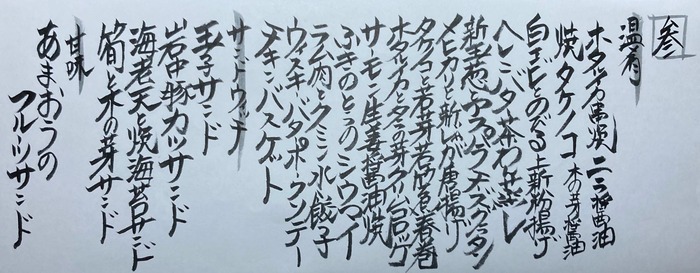 参
温肴
ホタルイカ串焼 ニラ醤油
焼タケノコ 木の芽醤油
白エビとのびる上新粉揚げ
ヘレンド茶わんむし
新玉葱とアスパラチーズグラタン
メヒカリと新じゃが唐揚げ
タケノコと若芽若竹煮春巻
ホタルイカとタラの芽クリームコロッケ
サーモン生姜醤油焼
ふきのとうのシウマイ
ラム肉とクミン水餃子
ウィスキーバタポークソテー
チキンバスケット
サンドウィッチ
玉子サンド
岩中豚カツサンド
海老天と焼海苔サンド
筍と木の芽サンド
甘味
あまおうの
フルーツサンド